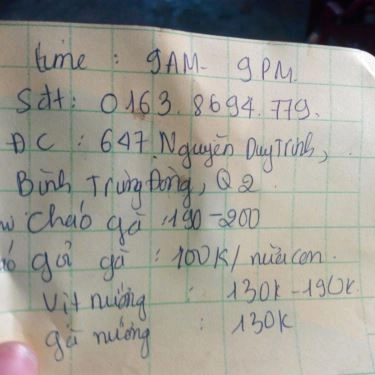 time : 9AM - 9PM
Sđt : 0163.8694.779.
ĐC : 647 Nguyễn Duy Trinh,
Bình Trưng Đông, Q2
Cháo gà : 190 - 200
gỏi gà : 100K / nửa con.
Vịt nướng : 130k - 190k.
gà nướng : 130k